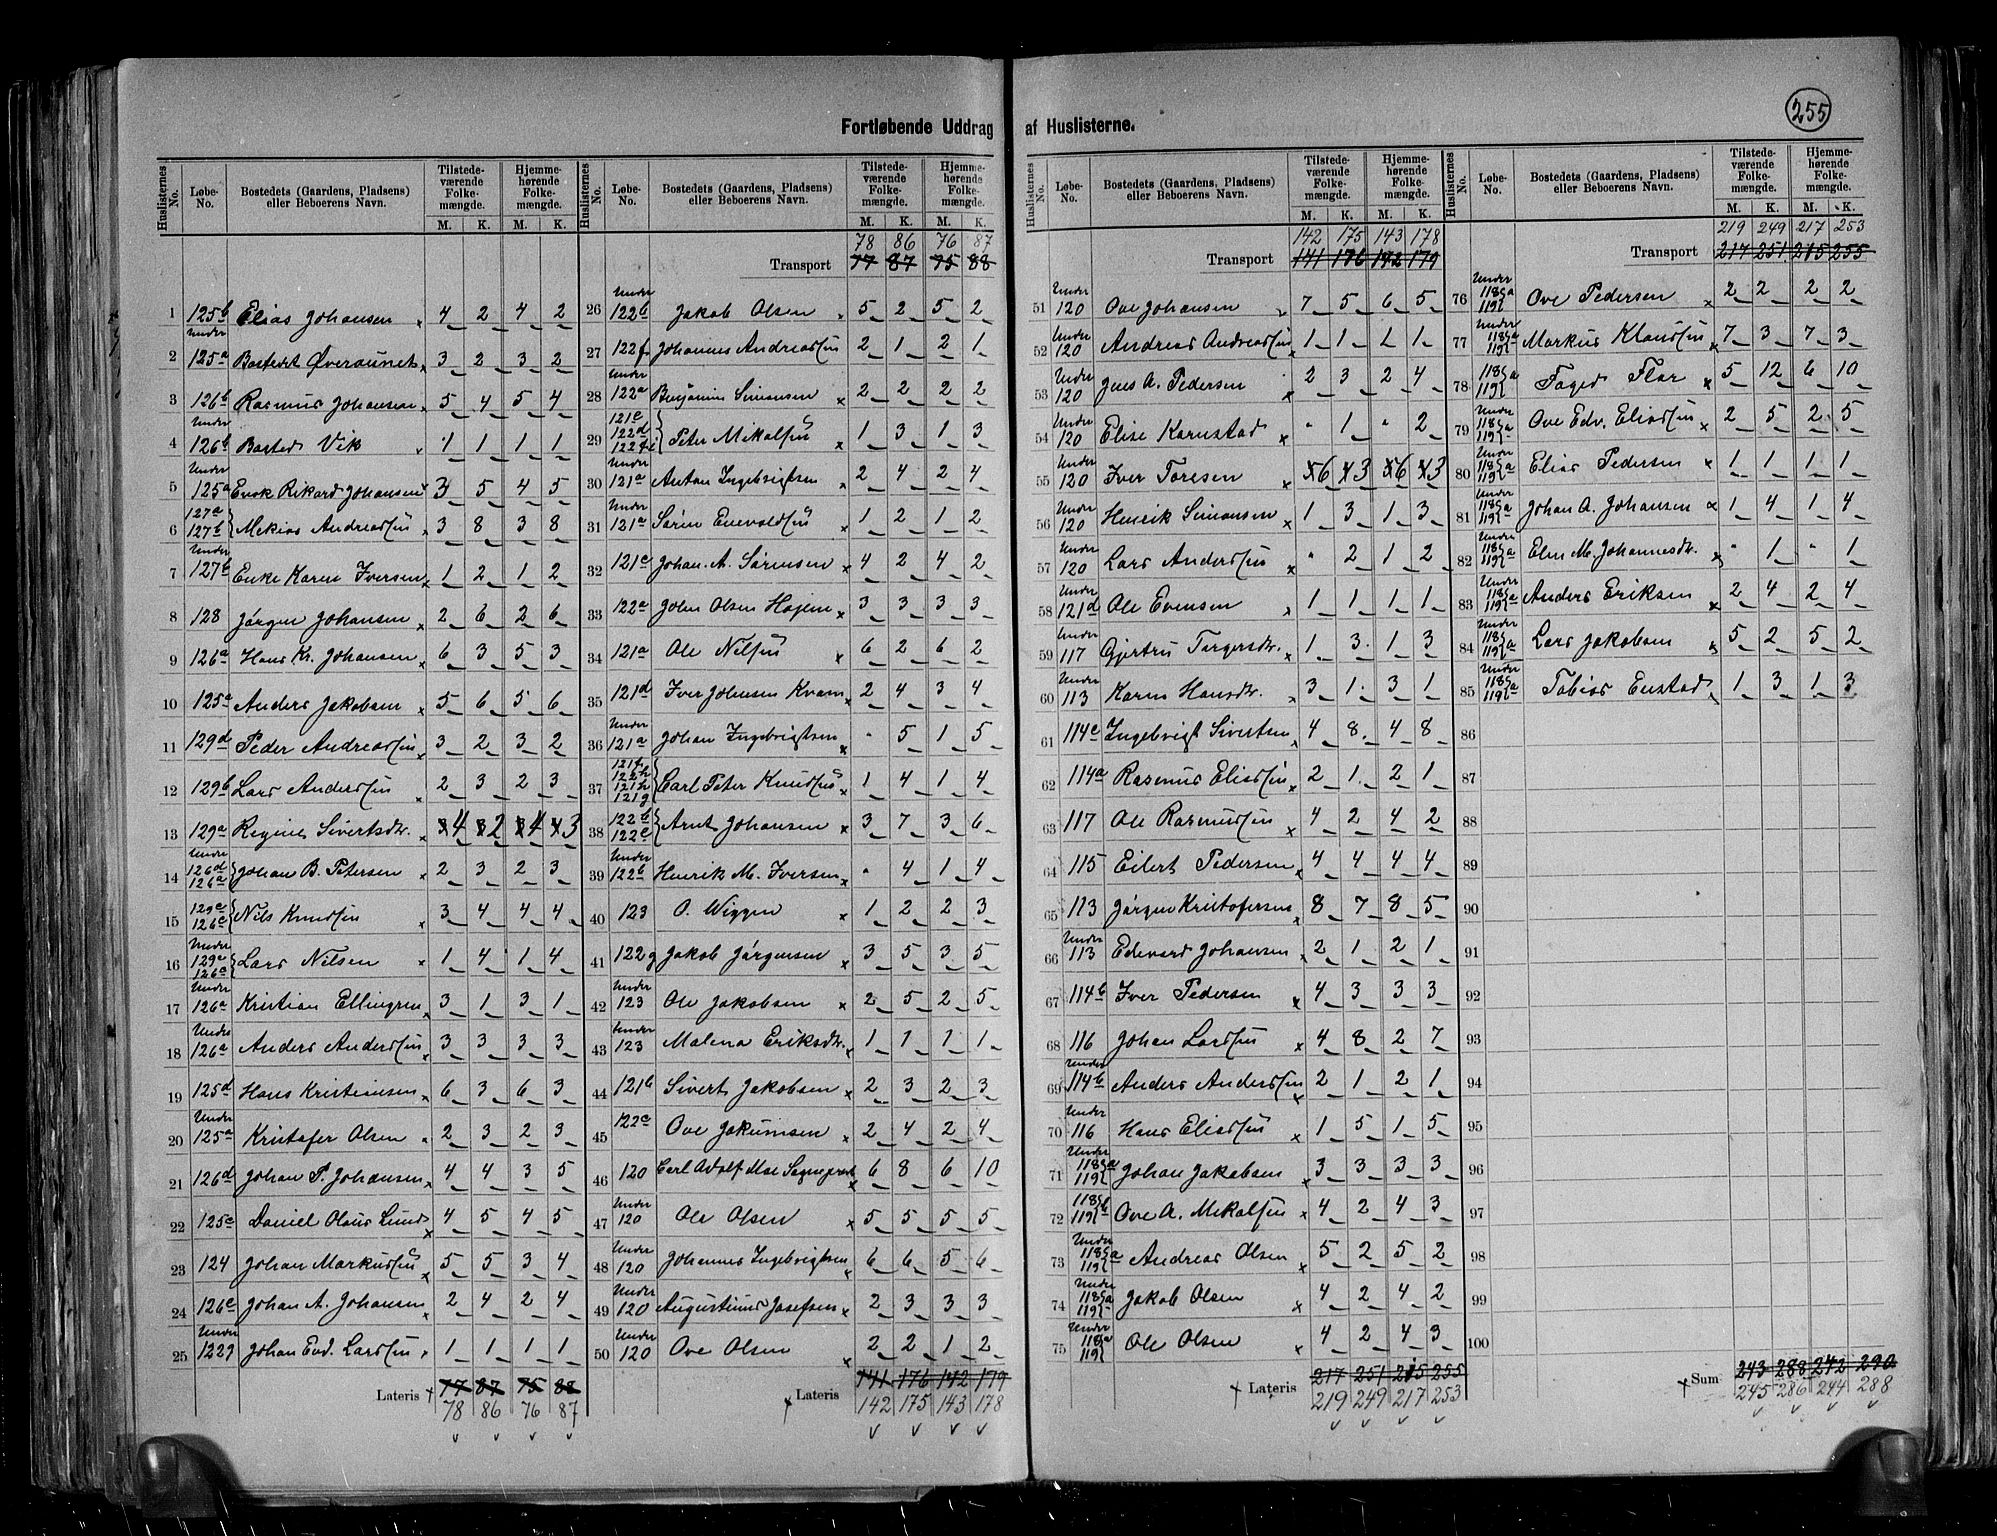 255
Fortløbende Uddrag af Huslisterne.
Huslisternes No. Løbe-No. Bostedets (Gaardens, Pladsens) eller Beboerens Navn. Tilstede-værende Folke-mængde. M. K. Hjemme-hørende Folke-mængde. M. K.
1 125b Elias Johansen 4 2 4 2
2 Under 125a Bostedet Øveraunet 3 2 3 2
3 126b Rasmus Johansen 5 4 5 4
4 Under 126b Bosted Vik 1 1 1 1
5 Under 125a Enok Rikard Johansen 3 5 4 5
6 127a 127b Mekias Andreassen 3 8 3 8
7 Under 127b Enke Karen Iversen 1 2 1 2
8 128 Jørgen Johansen 2 6 2 6
9 126a Hans Kr. Johansen 6 3 5 3
10 125a Anders Jakobsen 5 6 5 6
11 129d Peder Andreassen 3 2 3 2
12 129b Lars Anderssen 2 3 2 3
13 129a Regine Sivertsdr. 4 2 4 3
14 Under 126d 126a Johan B. Petersen 2 3 2 3
15 129c 126c Nils Knudsen 3 4 4 4
16 Under 129c 126a Lars Nilsen 1 4 1 4
17 Under 126a Kristian Ellingsen 3 1 3 1
18 Under 126a Anders Anderssen 3 3 3 3
19 125d Hans Kristiansen 6 3 6 3
20 Under 125a Kristofer Olsen 2 3 2 3
21 126d Johan P. Johansen 4 4 3 5
22 125c Daniel Olaus Lund 4 5 4 5
23 124 Johan Markussen 5 5 3 4
24 126c Johan A. Johansen 2 4 2 4
25 Under Johan Evd. Larssen 1 1 1 1
Lateris 77 87 75 88
78 86 76 87
Huslisternes No. Løbe-No. Bostedets (Gaardens, Pladsens) eller Beboerens Navn. Tilstede-værende Folke-mængde. M. K. Hjemme-hørende Folke-mængde. M. K.
78 86 76 87
Transport 77 87 75 88
26 Under 122b Jakob Olsen 5 2 5 2
27 122f Johannes Andreassen 2 1 2 1
28 Under 122a Benjamin Simonsen 2 2 2 2
29 121c 122d Peter Mikalsen 1 3 1 3
30 Under 121a Anton Ingebrigtsen 2 4 2 4
31 Under 121a Søren Enevoldsen 1 2 1 2
32 121c Johan A. Sørensen 4 2 4 2
33 122a John Olsen Højem 3 3 3 3
34 121a Ole Nilsen 6 2 6 2
35 121d Iver Johnsen Kvam 2 4 3 4
36 Under 121a Johan Ingebrigtsen " 5 1 5
37 121f 122h 121h 121g Carl Peter Knudsen 1 4 1 4
38 122b 122c Arnt Johansen 3 7 3 6
39 Under 122b Henrik M. Iversen " 4 1 4
40 123 O. Wiggen 1 2 2 3
41 122g Jakob Jørgensen 3 5 3 5
42 Under 123 Ole Jakobsen 2 5 2 5
43 Under 123 Malena Eriksdr. 1 1 1 1
44 121b Sivert Jakobsen 2 3 2 3
45 122c Ove Jakumsen 2 4 2 4
46 120 Carl Adolf Moe Sogneprest 6 8 6 10
47 Under 120 Ole Olsen 5 5 5 5
48 Under 120 Johannes Ingebrigtsen 6 6 5 6
49 Under 120 Augustinus Josefsen 2 3 3 3
50 Under 120 Ove Olsen 2 2 1 2
Lateris 141 176 142 179
142 175 143 178
Huslisternes No. Løbe-No. Bostedets (Gaardens, Pladsens) eller Beboerens Navn. Tilstede-værende Folke-mængde. M. K. Hjemme-hørende Folke-mængde. M. K.
142 175 143 178
Transport 141 176 142 179
51 Under 120 Ove Johansen 7 5 6 5
52 Under 120 Andreas Andreassen 1 1 1 1
53 Under 120 Jens A. Pedersen 2 3 2 4
54 Under 120 Elise Karnstad " 1 " 2
55 Under 120 Iver Toresen 6 3 6 3
56 Under 120 Henrik Simonsen 1 3 1 3
57 Under 120 Lars Anderssen " 2 1 2
58 Under 121d Ole Evensen 1 1 1 1
59 Under 117 Gjertru Torgersdr. 1 3 1 3
60 Under 113 Karen Hansdr. 3 1 3 1
61 114c Ingebrigt Sivertsen 4 8 4 8
62 114a Rasmus Eliassen 2 1 2 1
63 117 Ole Rasmussen 4 2 4 2
64 115 Eilert Pedersen 4 4 4 4
65 113 Jørgen Kristofersen 8 7 8 5
66 Under 113 Edevard Johansen 2 1 2 1
67 114b Iver Pedersen 4 3 3 3
68 116 Johan Larssen 4 8 2 7
69 Under 114b Anders Anderssen 2 1 2 1
70 Under 116 Hans Eliassen 1 5 1 5
71 Under 118 119 a Johan Jakobsen 3 3 3 3
72 118 119 b Ove A. Mikalsen 4 2 4 3
73 Under 118 119 a Andreas Olsen 5 2 5 2
74 Under 118 119 a Jakob Olsen 4 2 4 2
75 Under 118 119 a Ole Olsen 4 2 4 3
Lateris 217 251 215 255
219 249 217 253
Huslisternes No. Løbe-No. Bostedets (Gaardens, Pladsens) eller Beboerens Navn. Tilstede-værende Folke-mængde. M. K. Hjemme-hørende Folke-mængde. M. K.
219 249 217 253
Transport 217 251 215 255
76 Under 118 119 a Ove Pedersen 2 2 2 2
77 Under 118 119 a Markus Klaussen 7 3 7 3
78 118 119 a Foged Flor 5 12 6 10
79 Under 118 119 a Ove Edv. Eliassen 2 5 2 5
80 Under 118 119 a Elias Pedersen 1 1 1 1
81 Under 118 119 a Johan A. Johansen 1 4 1 4
82 Under 118 119 a Elen M. Johannesdr. " 1 " 1
83 Under 118 119 a Anders Eriksen 2 4 2 4
84 Under 118 119 a Lars Jakobsen 5 2 5 2
85 Under 118 119 a Tobias Enstad 1 3 1 3
86
87
88
89
90
91
92
93
94
95
96
97
98
99
100
Sum 243 288 242 290
245 286 244 288